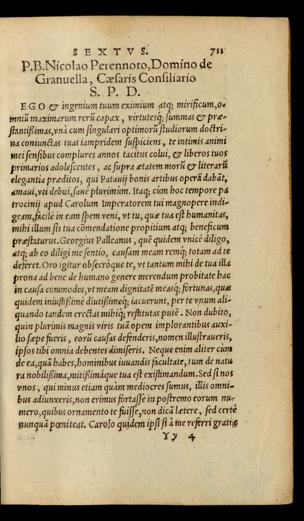 SEXTVS. 711
P. B. Nicolao Perennoto, Domino de
Granuella, Cæsaris Consiliario
S. P. D.
EGO & ingenium tuum eximium atq; mirificum, o-
mniū maximarum rerū capax, virtutesq; summas & præ-
stantißimas, vnà cum singulari optimorū studiorum doctri-
na coniunctas tuas iampridem suspiciens, te intimis animi
mei sensibus complures annos tacitus colui, & liberos tuos
primarios adolescentes, ac supra ætatem morū & literarū
elegantia præditos, qui Patauij bonis artibus operā dabāt,
amaui, vti debui, sanè plurimùm. Itaq; cùm hoc tempore pa
trocinij apud Carolum Imperatorem tui magnopere indi-
geam, facile in eam spem veni, vt tu, quæ tua est humanitas,
mihi illum sis tua cōmendatione propitium atq; beneficum
præstaturus. Georgius Palleanus, quē quidem vnicè diligo,
atq; ab eo diligi me sentio, causam meam remq; totam ad te
deferet. Oro igitur obsecróque te, vt tantum mihi de tua illa
prona ad bene de humano genere merendum probitate hac
in causa commodes, vt meam dignitatē measq; fortunas, quæ
quidem iniustißimè diutißimeq; iacuerunt, per te vnum ali-
quando tandem erectas mihiq; restitutas putē. Non dubito,
quin plurimis magnis viris tuā opem implorantibus auxi-
lio sæpe fueris, eorū causas defenderis, nomen illustraueris,
ipsos tibi omnia debentes dimiseris. Neque enim aliter cùm
de ea, quā habes, hominibus iuuandis facultate, tum de natu
ra nobilißima, mitißimáque tua est existimandum. Sed si nos
vnos, qui minus etiam quàm mediocres sumus, illis omni-
bus adiunxeris, non erimus fortasse in postremo eorum nu-
mero, quibus ornamento te fuisse, non dicā lætere, sed certè
nunquā pœniteat. Carolo quidem ipsi si à me referri gratia
Yy 4